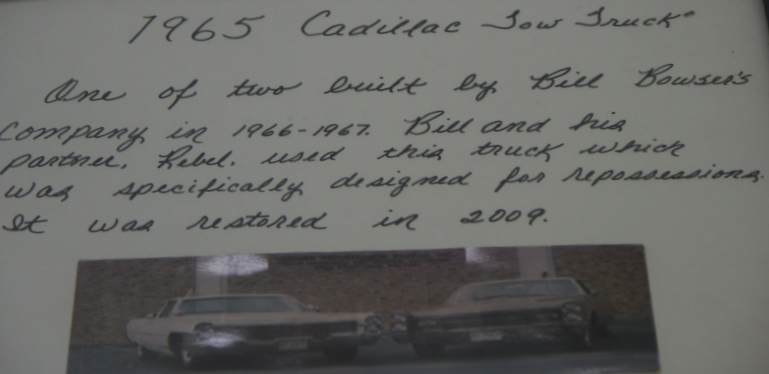 1965 Cadillac Tow Truck
One of two built by Bill Bowser's
Company in 1966-1967. Bill and his
partner, Rebel, used this truck which
was specifically designed for repossessions.
It was restored in 2009.